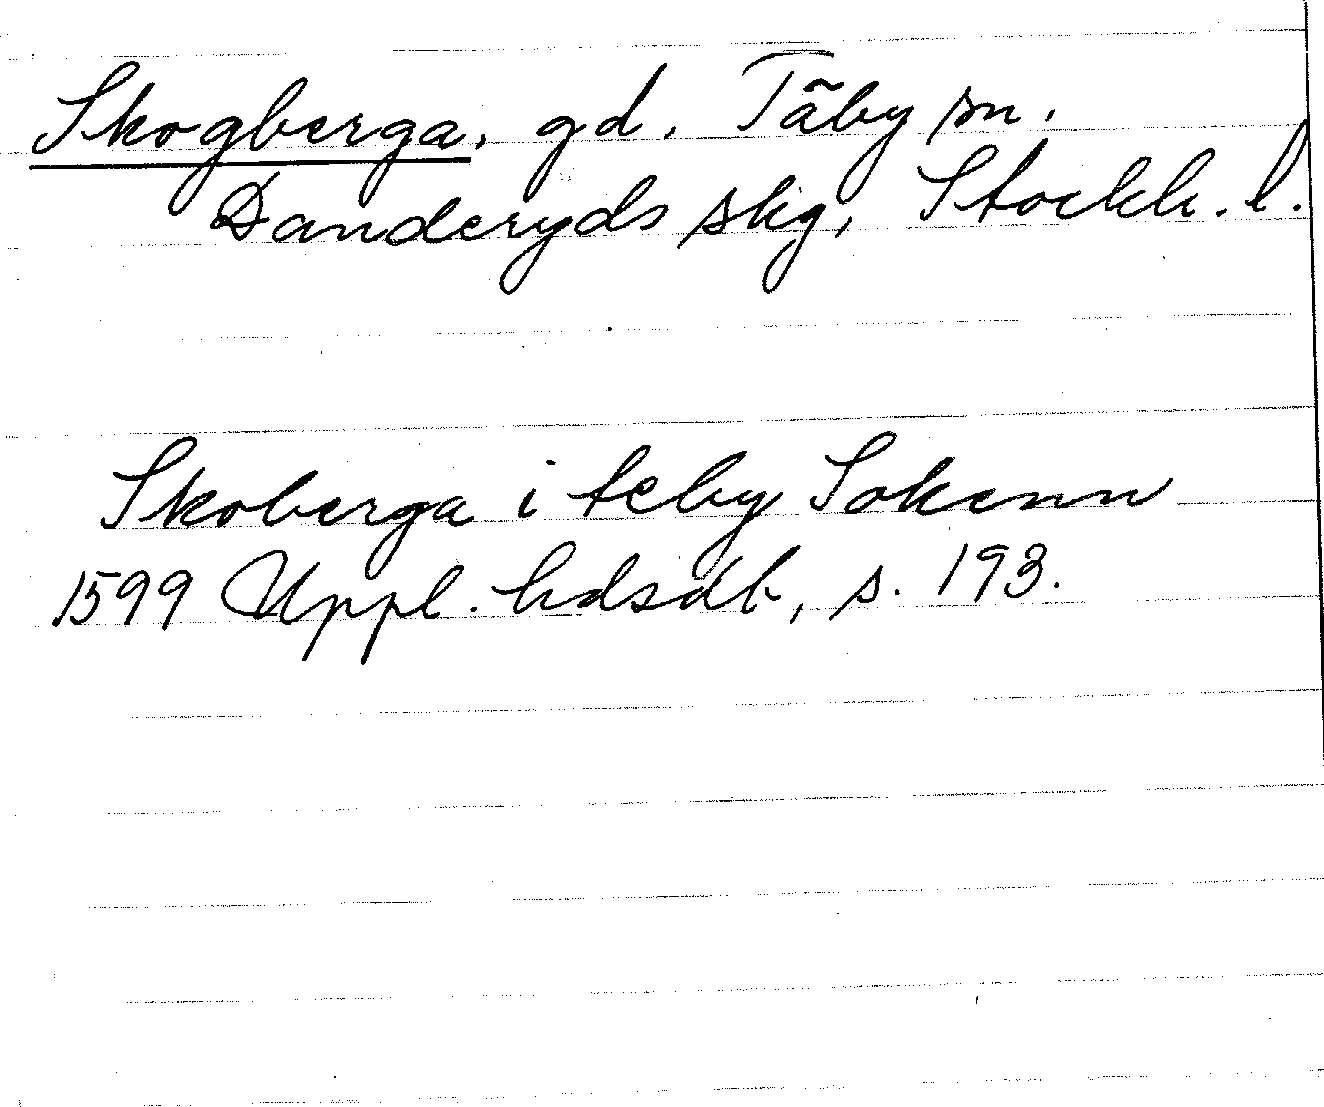 Skogberga, gd, Täby sn,
Danderyds skg, Stockh. l.
Skoberga i teby Sokenn
1599 Uppl. hdsdb, s. 193.